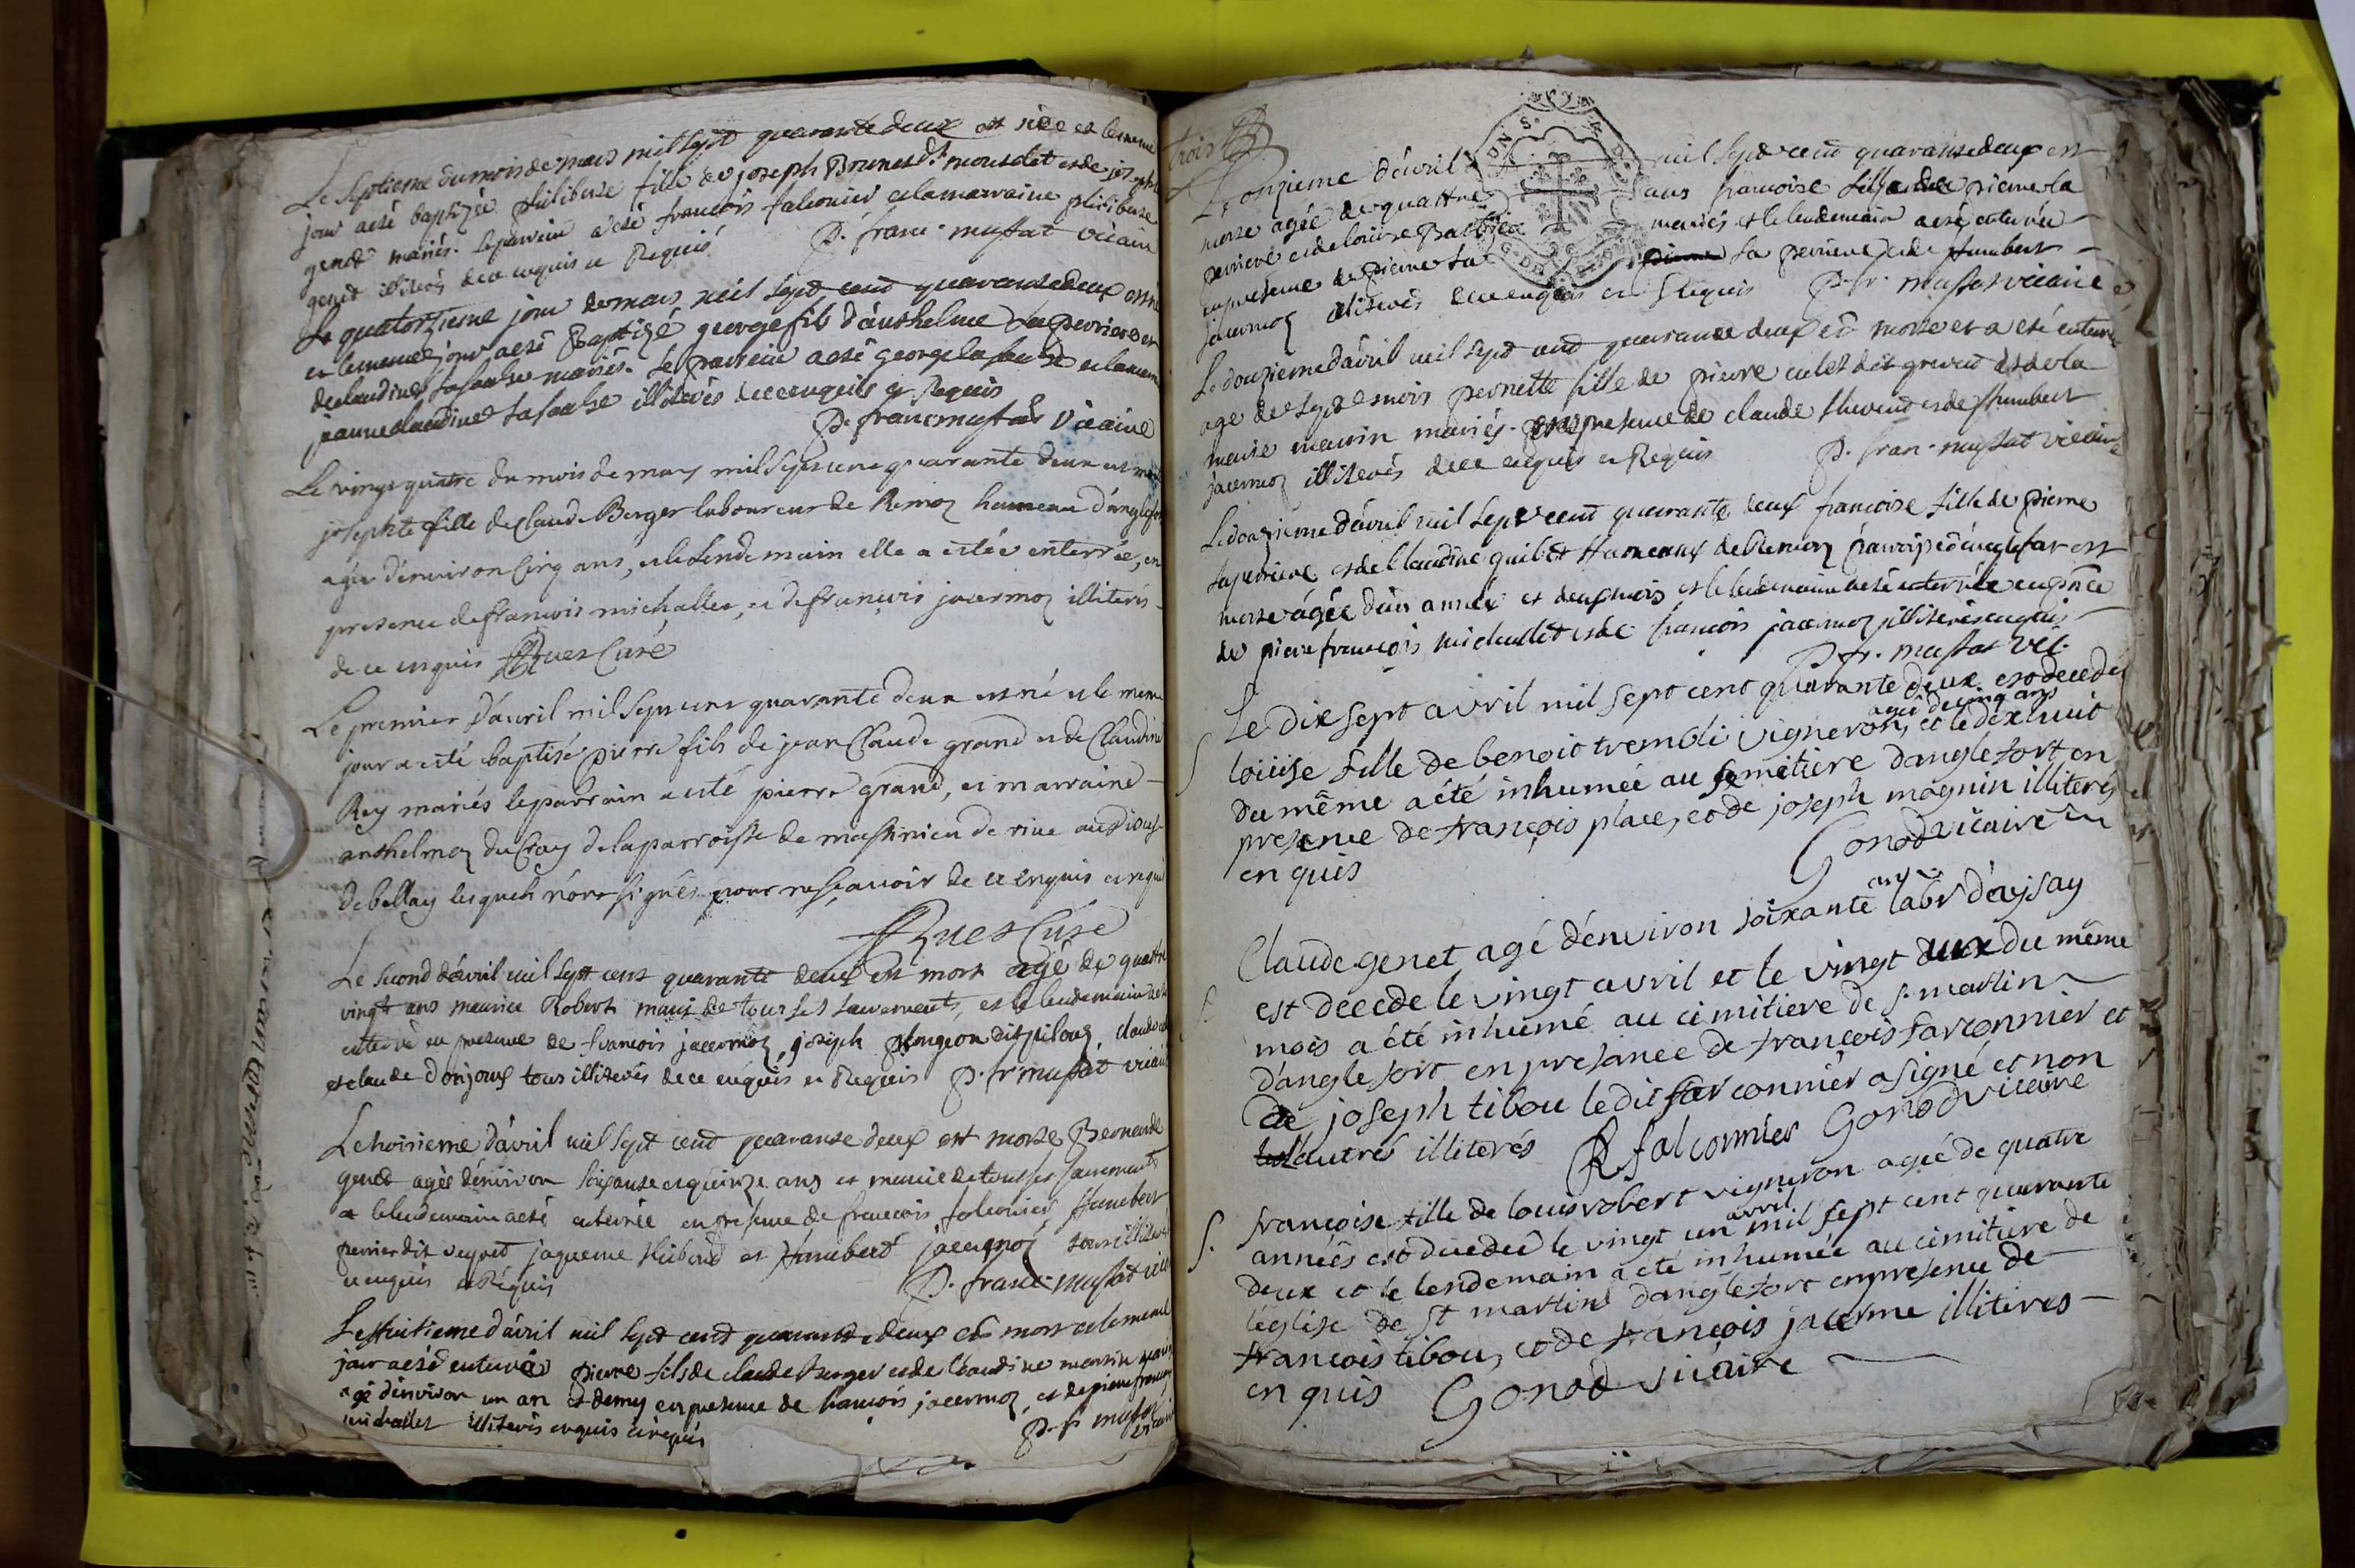 Le septieme du mois de mars mil sept quarante deux est née et le meme
jour a esté baptizée philiberte fille de joseph Brunet dt mousdet et de josephte
genod mariés. le parrein a été francois falconier et la marraine philiberte
genod illiterés de ce enquis et Requis P. franc. mussat vicaire
Le quatorzieme jour de mars mil sept cent quarante deux est né
et le meme jour a esté Baptizé george fils d'anthelme La perriere et
de claudine Lafaulse mariés. Le parrein a esté george lafaulse et la marr
jeanne claudine Lafaulse illiterés de ce enquis et Requis
P. franc mussat Vicaire
Le vingt quatre du mois de mars mil sept cent quarante deux est morte
josephte fille de Claude Berger laboureur de Remoz hameau d'anglefort
agée d'environ Cinq ans, et le Lendemain elle a estée enterrée, en
presence de francois michallet, et de françois jacermoz illiterés
de ce enquis Rues Curé
Le premier d'avril mil sept cent quarante deux est né et le meme
jour a esté baptisé pierre fils de jean Claude grand et de Claudine
Rey mariés le parrain a esté pierre grand, et marraine
anthelmoz du Cray de la parroisse de massinieu de rive au Dioise
de bellay lesquels n'ont signés pour ne sçavoir de ce enquis et requis
Rues Curé
Le second d'avril mil sept cent quarante deux est mort agé de quattre
vingt ans maurice Robert muni de tous ses sacrements, et le lendemain a esté
enterré en presence de francois jacermoz, joseph plongeon dit pilouz,
et claude donjoux tous illiterés de ce enquis et Requis P. fr mussat vicaire
Le hoitieme d'avril mil sept cent quarante deux est morte Bernarde
genod agée d'environ soixante et quinze ans et munie de tous ses sacrements
et le lendemain a esté enterrée en presence de francois falconier, humbert
perrier dit veyret jaqueme thiboud et humbert jacermoz tous illiterés
et enquis et Requis P. franc. mussat vice
Le huitieme d'avril mil sept cent quarante deux est mort et le meme
jour a esté enterré pierre fils de claude Berger et de claudine martin mariés
agé d'environ un an et demy en presence de francois jacermoz, et de pierre francois
michallet illiterés enquis et requis P. fr mussat
vicaire
trois
L'onzieme d'avril mil sept cent quarante deux est
morte agée de quattre ans francoise fille de pierre la
perriere et de louise Barbier mariés et le lendemain a esté enterrée
en presence de pierre La perriere et de humbert
jacermoz illiterés de ce enquis et Requis P. fr. mussat vicaire
Le douzieme d'avril mil sept cent quarante deux est morte et a esté enterrée
age de sept mois pernette fille de pierre culet dit grevod et de la
marie mannin mariés. en presence de claude thevend et de humbert
jacermoz illiterés de ce enquis et Requis P. fran. mussat vicaire
Le douzieme d'avril mil sept cent quarante deux francoise fille de pierre
laperriere et de claudine quilet hameaux de Remoz parroisse d'anglefort est
morte agée d'un année et deux mois et le lendemain a esté enterrée en pnce
de pierre francois michallet et de francois jacermoz illiterés enquis
P. fr. mussat vic.
Le dix sept avril mil sept cent quarante deux est decedée
agée de cinq ans
loüise fille de benoit trembli vigneron, et le dix huit
du même a été inhumée au semitiere danglefort en
presence de françois place, et de joseph magnin illiterés
enquis Gonod vicaire
ans
Claude genet agé d'environ soixante labr d'aysay
est decede le vingt avril et le vingt deux du même
mois a été inhumé au cimitiere de s. martin
d'anglefort en presance de francois farconnier et
de joseph tibou le dit farconnier a signé et non
l'autre illiterés R falconnier Gonod vicaire
francoise fille de louis robert vigneron agée de quatre
avril
années est decedée le vingt un mil sept cent quarante
deux et le lendemain a eté inhumée au cimitiere de
l'église de st martin d'anglefort en presence de
francois tibou, et de francois jacerme illiteres
en quis Gonod vicaire